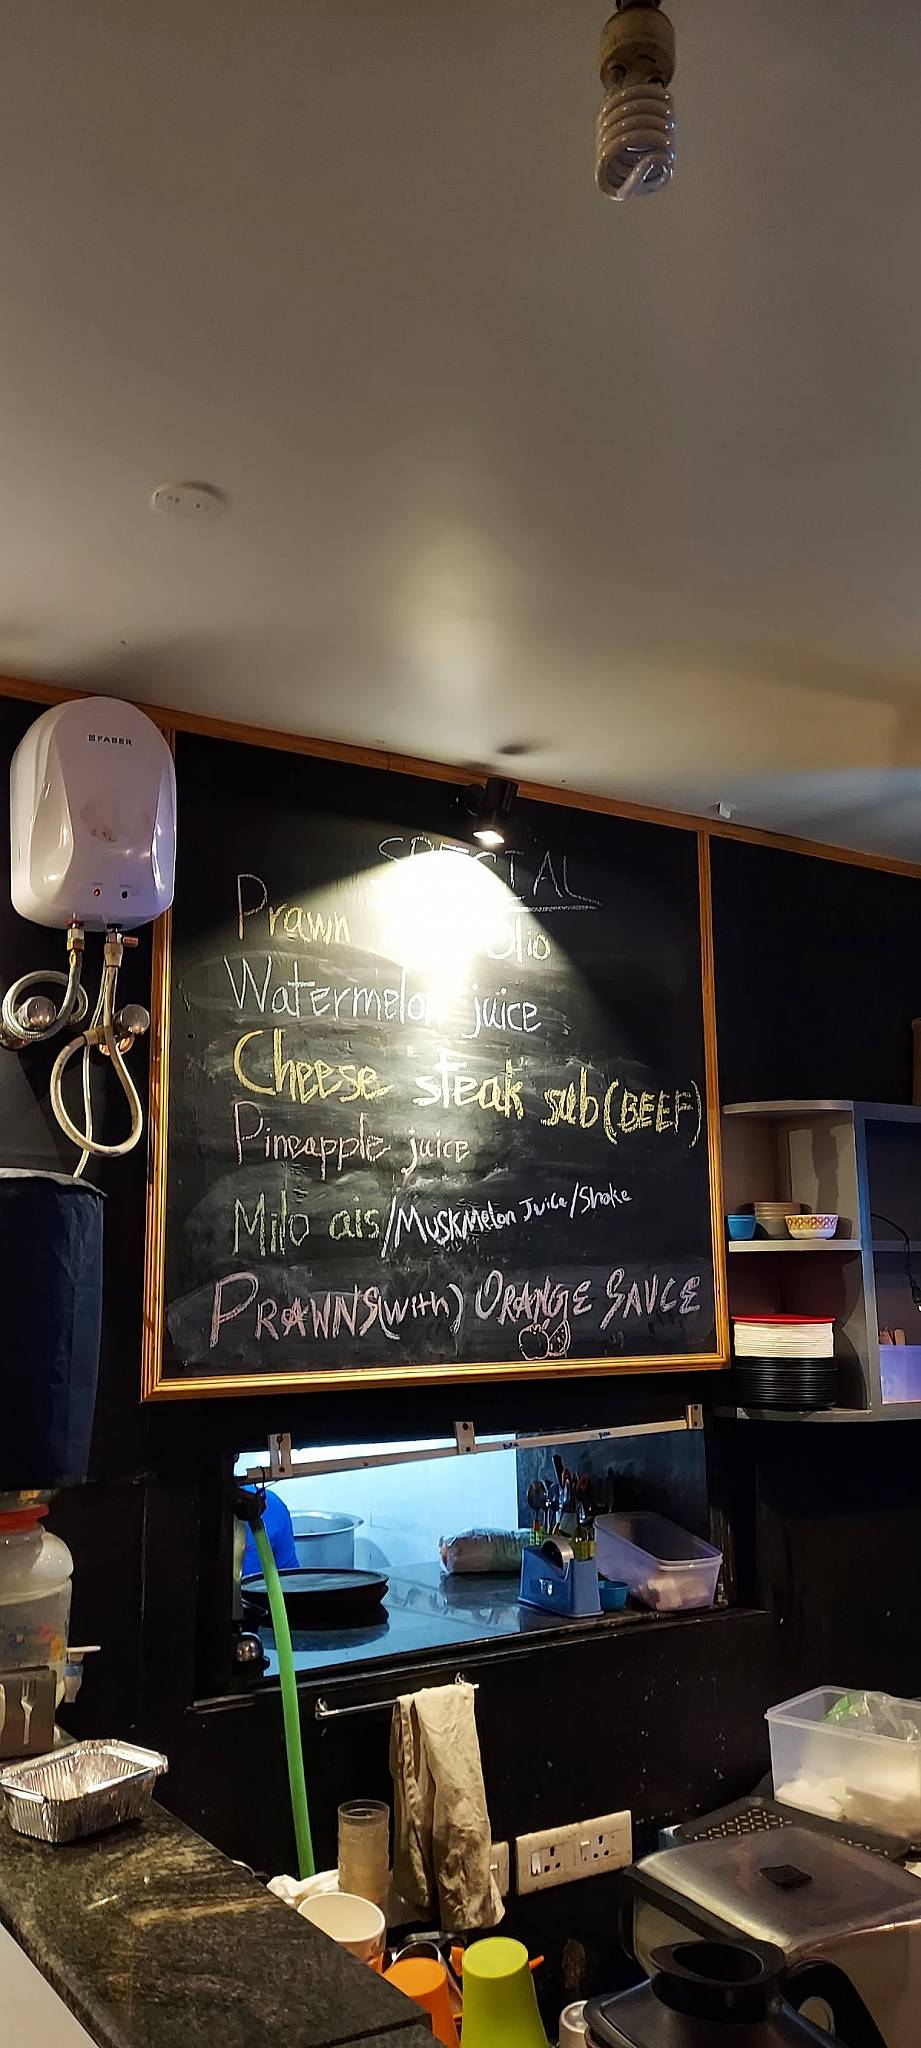 FABER
SPECIAL
Prawn olio
Watermelon juice
Cheese steak sub (BEEF)
Pineapple juice
Milo ais/MuskMelon Juice/Shake
PRAWNS (WITH) ORANGE SAUCE